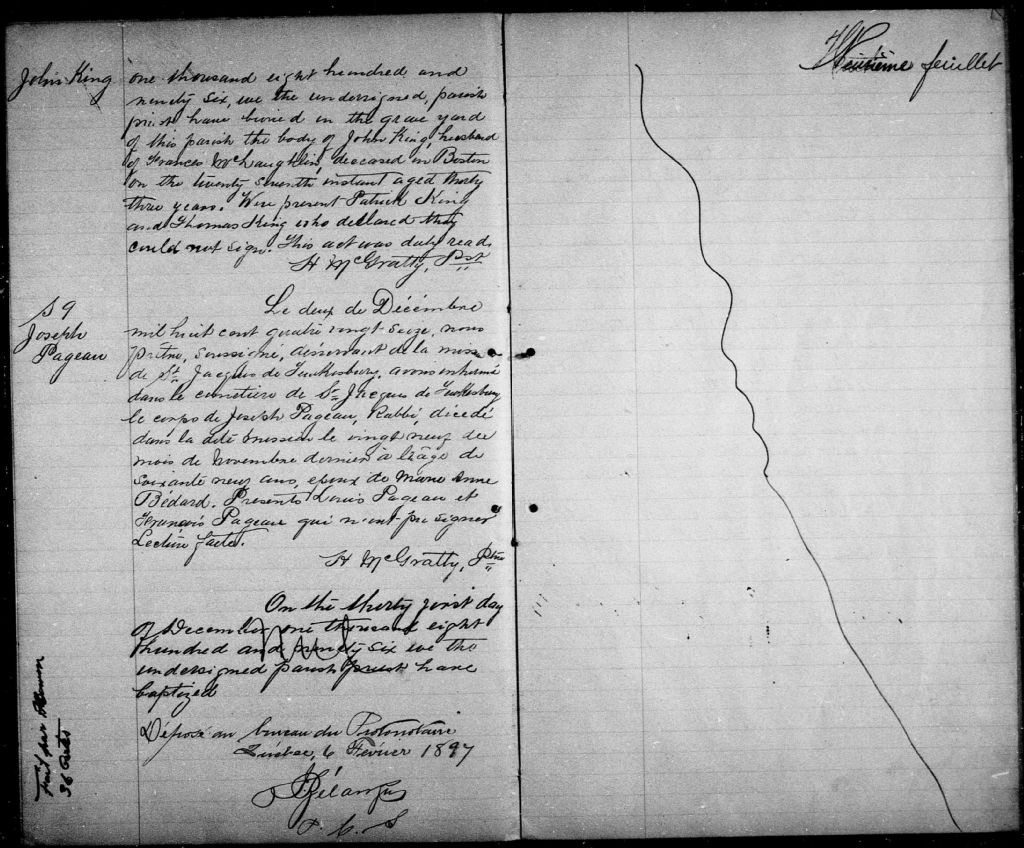 John King
one thousand eight hundred and
ninety six, we the undersigned, parish
priest have buried in the grave yard
of this parish the body of John King, husband
of Frances McLaughlin, deceased in Boston
on the twenty seventh instant aged thirty
three years. Were present Patrick King
and Thomas King who declared they
could not sign. This act was duly read.
H McGratty, Pst
S 9
Joseph
Pageau
Le deux de Décembre
mil huit cent quatre vingt seize, nous
prêtre, soussigné, desservant de la mission
de St. Jacques de Tewkesbury, avons inhumé
dans le cimetière de St. Jacques de Tewkesbury
le corps de Joseph Pageau, décédé
dans la dite mission le vingt neuf du
mois de novembre dernier à l'âge de
soixante neuf ans, epoux de Marie Anne
Bédard. Presents Louis Pageau et
Francois Pageau qui n'ont pu signer
Lecture faite.
H McGratty, Ptre
On the thirty first day
of December one thousand eight
hundred and ninety six we the
undersigned parish priest have
baptized
nul
Déposé au bureau du Protonotaire
Québec, 6 Février 1897
36 actes
feuillet